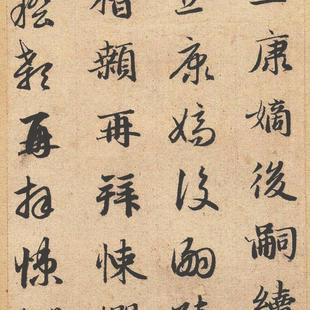 康嫡後嗣續
且康嫡後嗣續
稽顙再拜悚懼
稽顙再拜悚